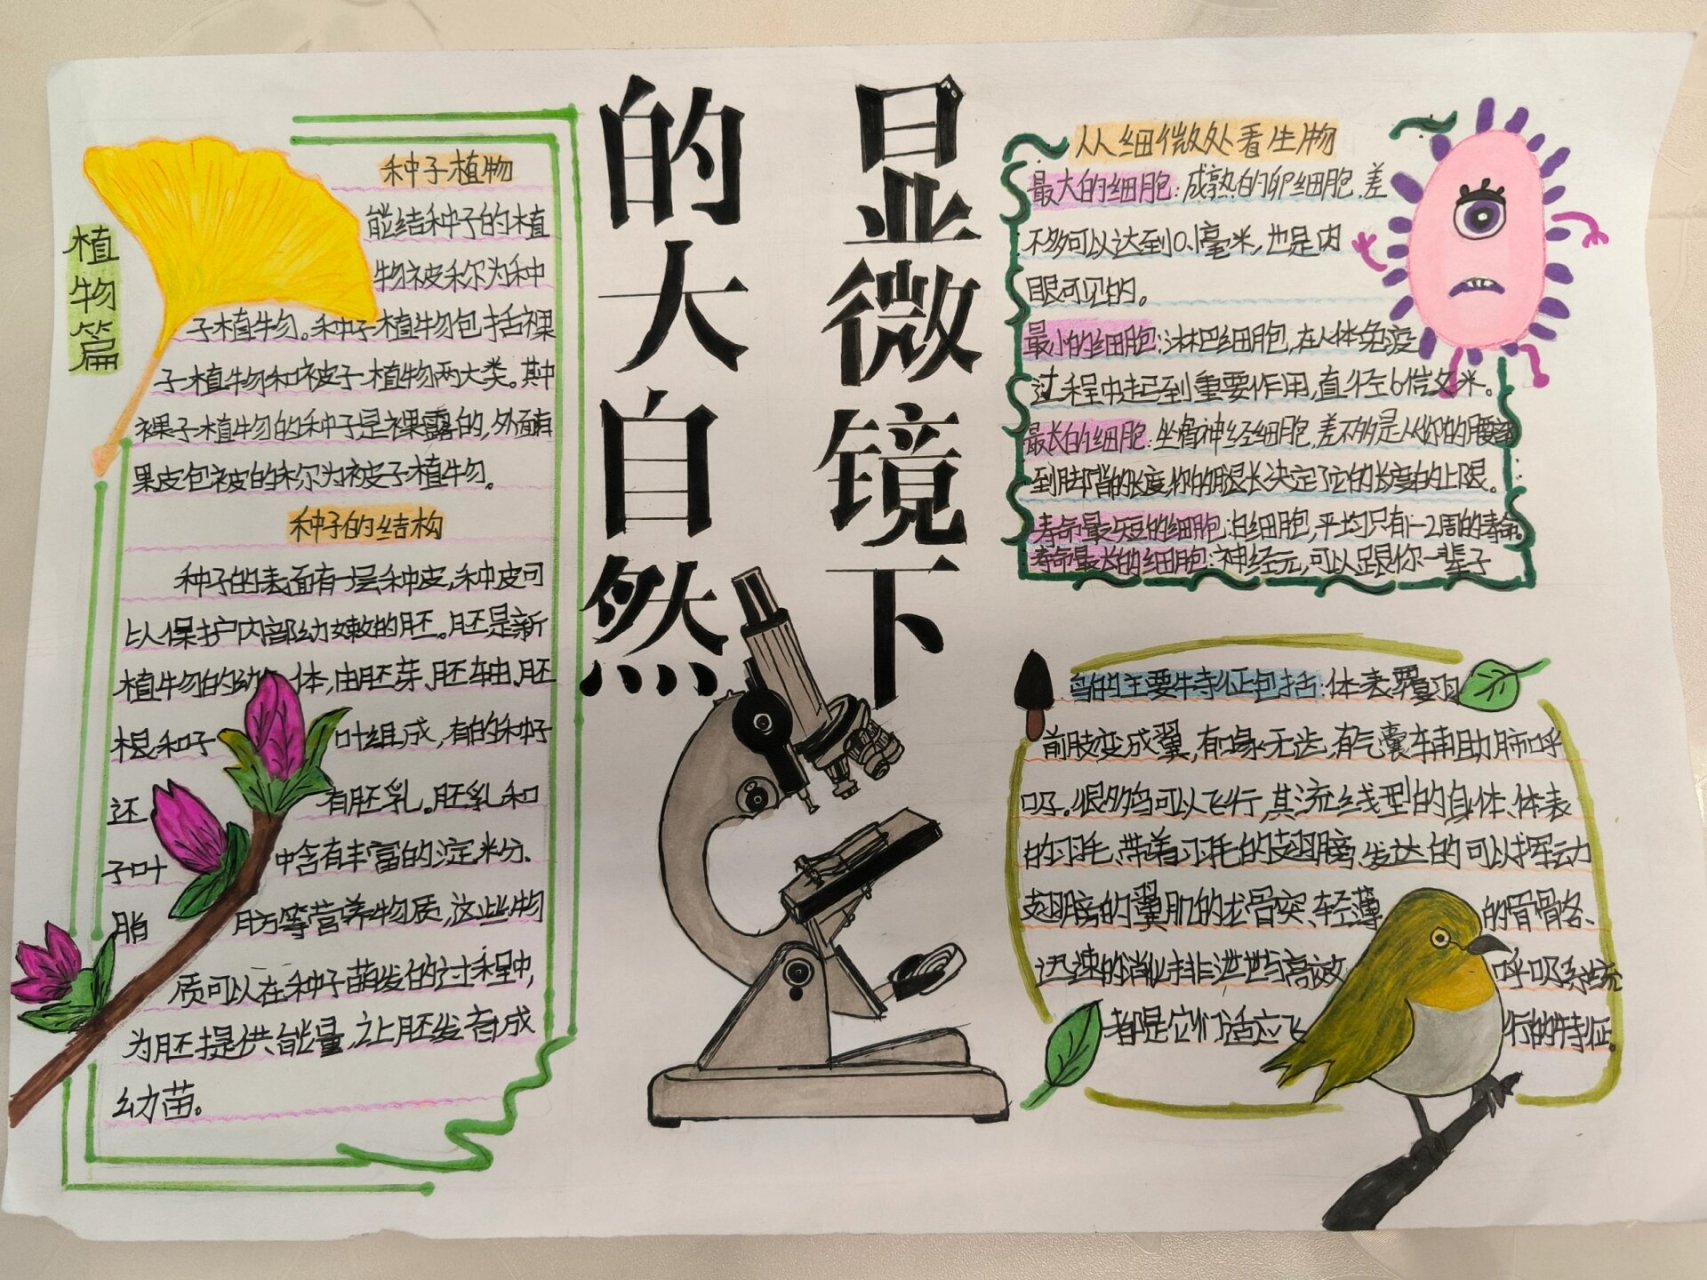 显微镜下
的大自然
植物篇
种子植物
能结种子的植
物被称为种
子植物。种子植物包括裸
子植物和被子植物两大类。其中
裸子植物的种子是裸露的,外面有
果皮包被的称为被子植物。
种子的结构
种子的表面有一层种皮,种皮可
以保护内部幼嫩的胚。胚是新
植物的幼 体,由胚芽、胚轴、胚
根和子 叶组成,有的种子
还 有胚乳。胚乳和
子叶 中含有丰富的淀粉、
脂 肪等营养物质,这些物
质可以在种子萌发的过程中,
为胚提供能量,让胚发育成
幼苗。
从细微处看生物
最大的细胞:成熟的卵细胞,差
不多可以达到0.1毫米,也是肉
眼可见的。
最小的细胞:淋巴细胞,在人体免疫
过程中起到重要作用,直径6微米。
最长的细胞:坐骨神经细胞,差不多是从你的腰部
到脚背的长度,你的腿长决定了它的长度的上限。
寿命最短的细胞:白细胞,平均只有1-2周的寿命。
寿命最长的细胞:神经元,可以跟你一辈子
鸟的主要特征包括:体表覆羽
前肢变成翼,有喙无齿,有气囊辅助肺呼
吸。很多鸟可以飞行,其流线型的身体、体表
的羽毛、带着羽毛的翅膀,发达的可以挥动
翅膀的翼肌的龙骨突、轻薄 的骨骼、
迅速的消化排泄与高效 呼吸系统
都是它们适应飞 行的特征。